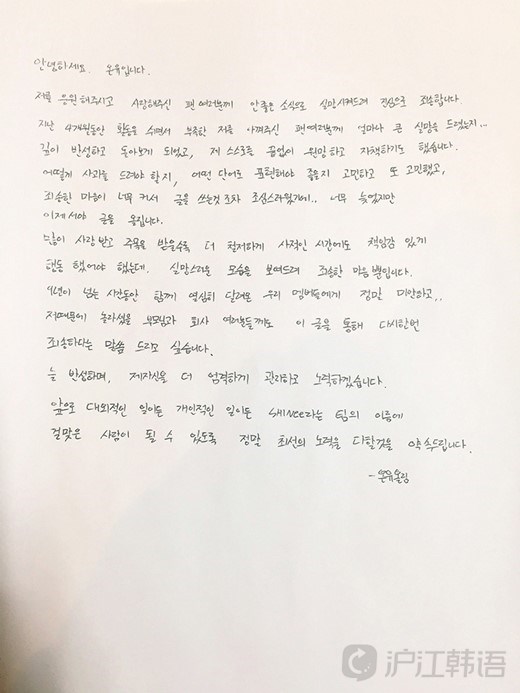 안녕하세요. 온유입니다.
저를 응원해주시고 사랑해주신 팬 여러분께 안좋은 소식으로 실망시켜드려 진심으로 죄송합니다
지난 4개월동안 활동을 쉬면서 부족한 저를 아껴주신 팬여러분께 얼마나 큰 실망을 드렸는지...
깊이 반성하고 돌아보게 되었고, 제 스스로를 끝없이 원망하고 자책하기도 했습니다.
어떻게 사과를 드려야 할지, 어떤 단어로 표현해야 좋을지 고민하고 또 고민했고,
죄송한 마음이 너무 커서 글을 쓰는것 조차 조심스러웠기에.. 너무 늦었지만
이제서야 글을 올립니다.
많이 사랑받고 주목을 받을수록 더 철저하게 사적인 시간에도 책임감 있게
행동 했어야 했는데. 실망스러운 모습을 보여드려 죄송한 마음 뿐입니다.
9년이 넘는 시간동안 함께 열심히 달려온 우리 멤버들에게 정말 미안하고..
저때문에 놀라셨을 부모님과 회사 여러분들께도 이 글을 통해 다시한번
죄송하다는 말씀 드리고 싶습니다.
늘 반성하며, 제자신을 더 엄격하게 관리하고 노력하겠습니다.
앞으로 대외적인 일이든 개인적인 일이든 SHINee라는 팀의 이름에
걸맞은 사람이 될 수 있도록 정말 최선의 노력을 다할것을 약속드립니다.
-온유올림
沪江韩语